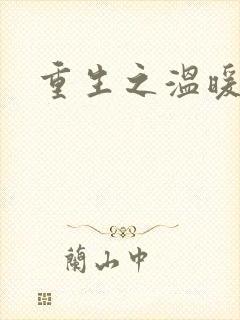 重生之溫暖
蘭山中